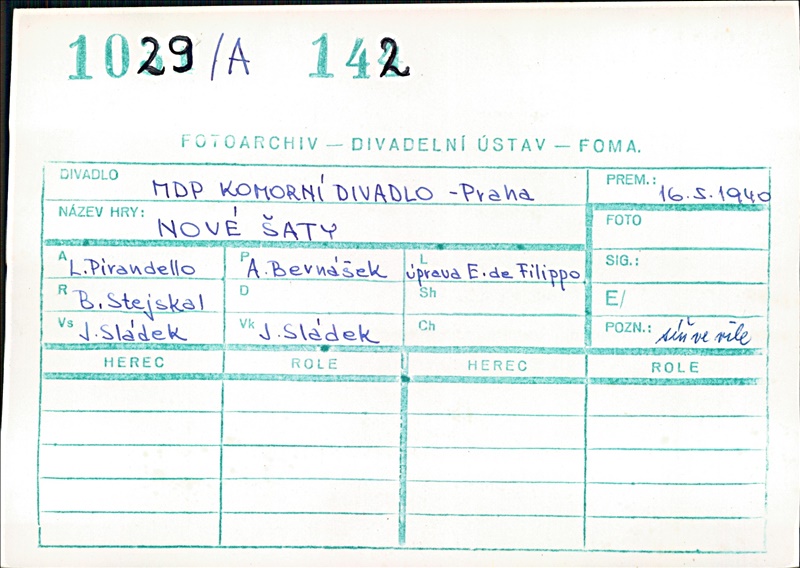 1029/A 142
FOTOARCHIV — DIVADELNÍ ÚSTAV — FOMA.
DIVADLO MDP KOMORNÍ DIVADLO - Praha PREM.: 16.5.1940
NÁZEV HRY: NOVÉ ŠATY FOTO
A L. Pirandello P A. Bernášek L úprava E. de Filippo SIG.:
R B. Stejskal D Sh E/
Vs J. Sládek Vk J. Sládek Ch POZN.: síň ve vile
HEREC ROLE HEREC ROLE